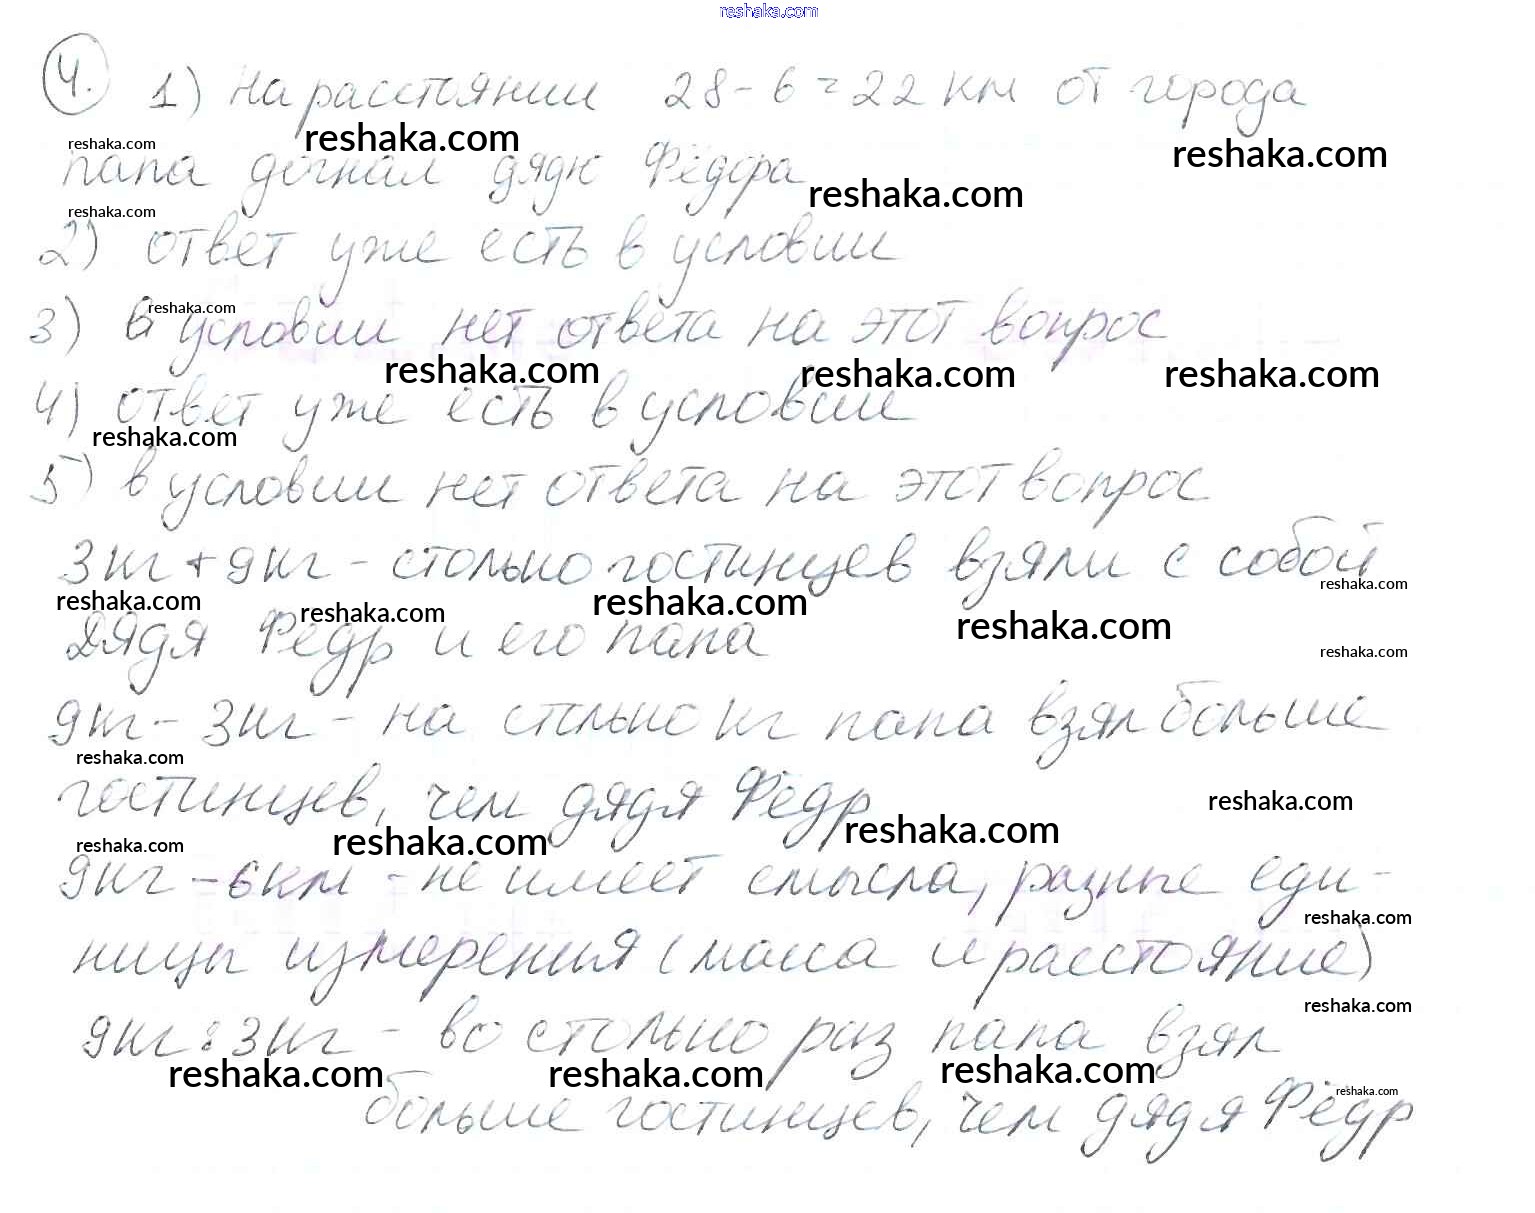 reshaka.com
4. 1) На расстоянии 28-6=22 км от города
reshaka.com reshaka.com reshaka.com
папа догнал дядю Фёдора
reshaka.com reshaka.com
2) ответ уже есть в условии
3) в условии нет ответа на этот вопрос
reshaka.com
reshaka.com reshaka.com reshaka.com
4) ответ уже есть в условии
reshaka.com
5) в условии нет ответа на этот вопрос
3кг+9кг - столько гостинцев взяли с собой
reshaka.com reshaka.com reshaka.com reshaka.com reshaka.com
дядя Федр и его папа
reshaka.com
9кг - 3кг - на столько кг папа взял больше
reshaka.com
гостинцев, чем дядя Фёдр
reshaka.com reshaka.com reshaka.com reshaka.com
9кг - 6км - не имеет смысла, разные еди-
reshaka.com
ницы измерения (масса и расстояние)
reshaka.com
9кг : 3кг - во столько раз папа взял
reshaka.com reshaka.com reshaka.com reshaka.com
больше гостинцев, чем дядя Фёдр